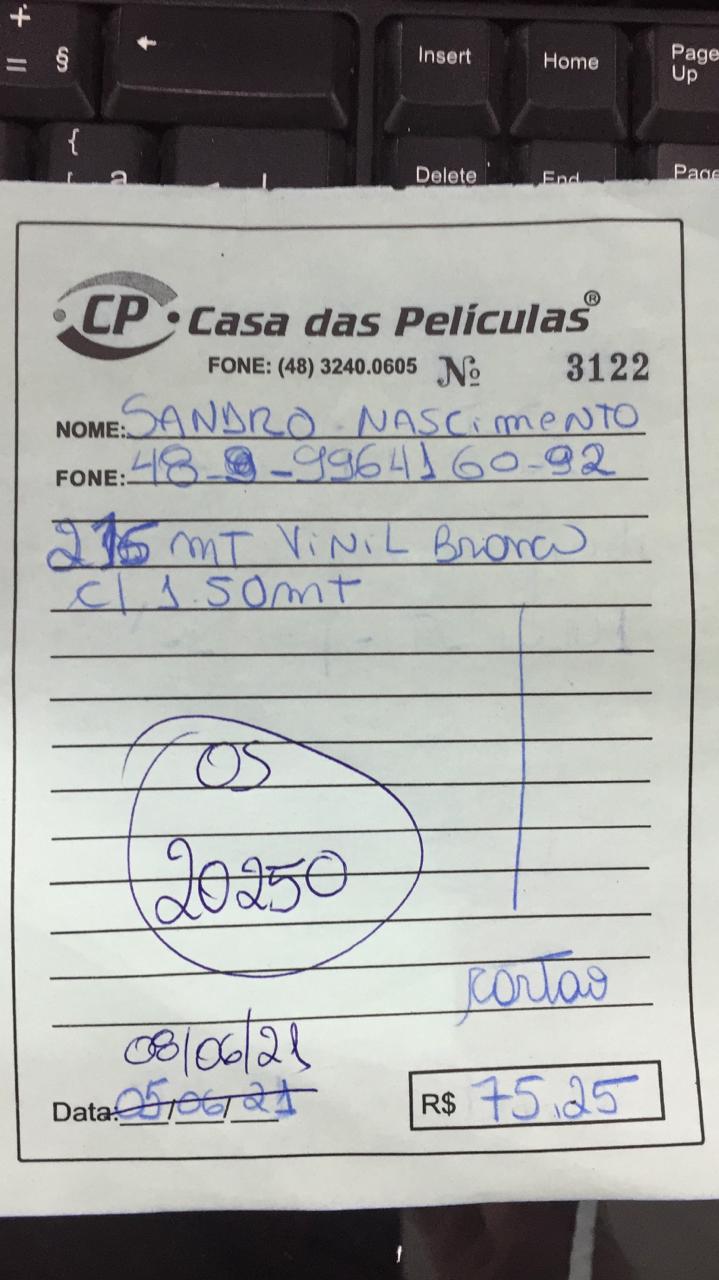 +
= §
←
Insert
Home
Page Up
{
[ a
Delete
End
Page
CP Casa das Películas®
FONE: (48) 3240.0605 Nº 3122
NOME: SANDRO NASCIMENTO
FONE: 48-9-9964160-92
mT ViNiL Branco
c/ 1.50mT
OS
20250
cartao
08/06/21
Data: 05/06/21
R$ 75,25